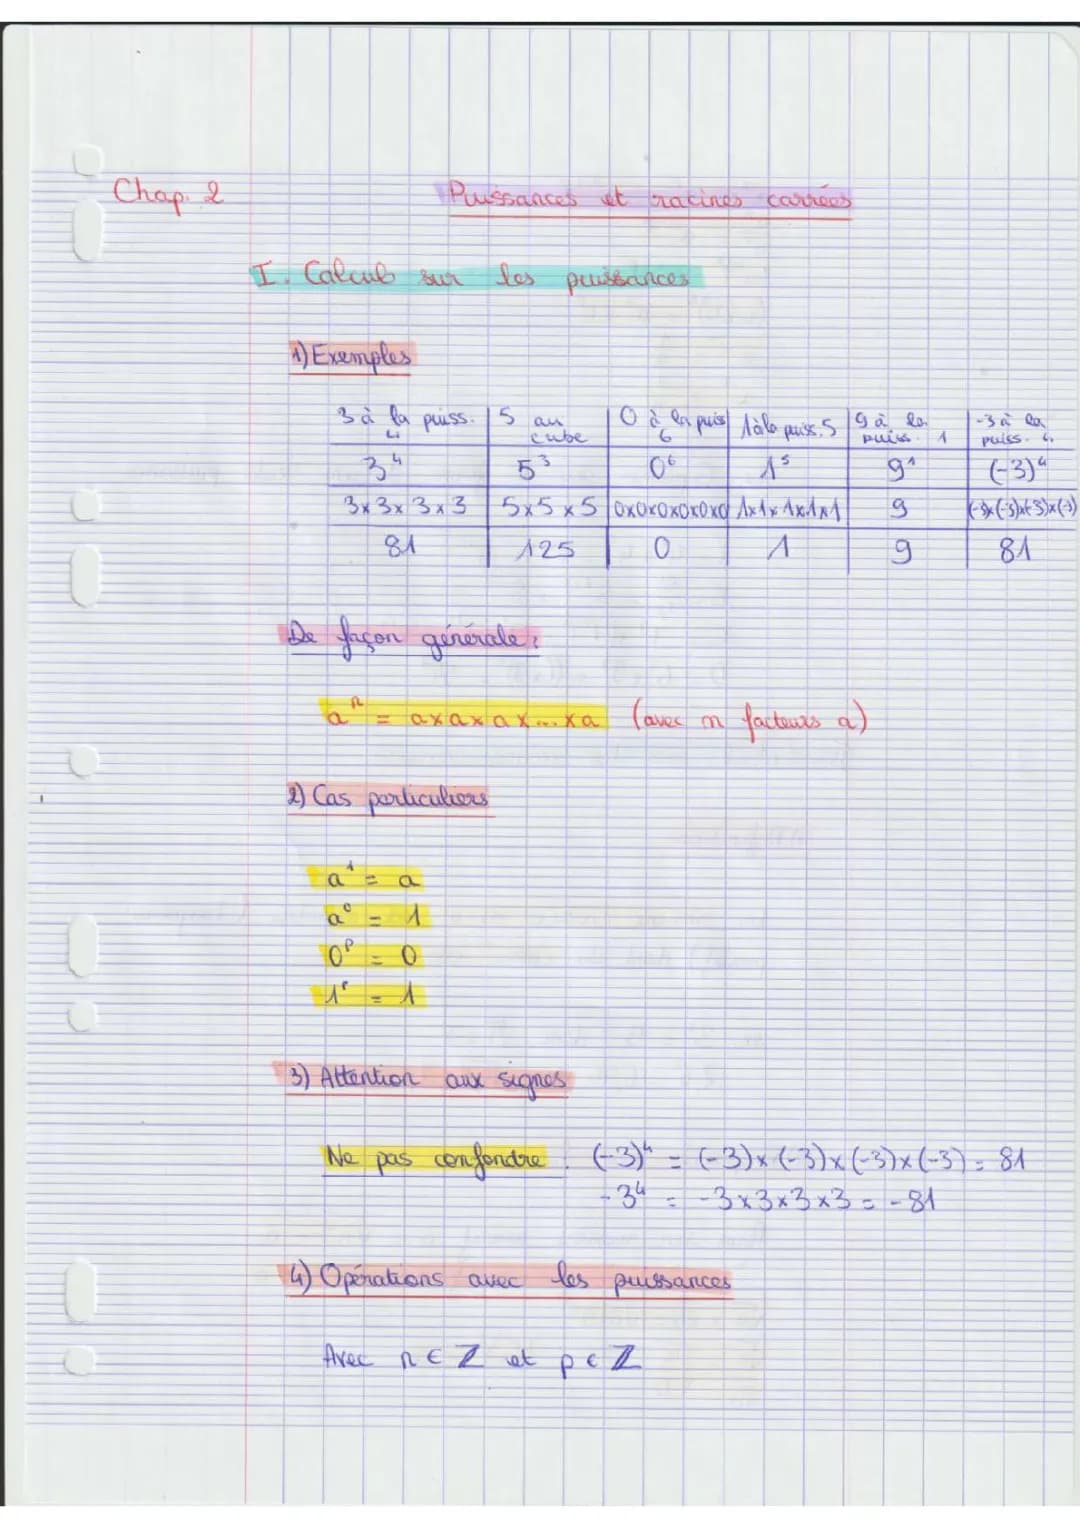 Chap. 2
Puissances et racines carrées
I. Calculs sur les puissances
1) Exemples
3 à la puiss. 4 | 5 au cube | 0 à la puis 6 | 1 à la puiss. 5 | 9 à la puiss. 1 | -3 à la puiss. 4
3⁴ | 5³ | 0⁶ | 1⁵ | 9¹ | (-3)⁴
3x3x3x3 | 5x5x5 | 0x0x0x0x0x0 | 1x1x1x1x1 | 9 | (-3)x(-3)x(-3)x(-3)
81 | 125 | 0 | 1 | 9 | 81
De façon générale :
aⁿ = axaxax...xa (avec n facteurs a)
2) Cas particuliers
a¹ = a
a⁰ = 1
0ᵖ = 0
1ᵖ = 1
3) Attention aux signes
Ne pas confondre : (-3)⁴ = (-3)x(-3)x(-3)x(-3) = 81
-3⁴ = -3x3x3x3 = -81
4) Opérations avec les puissances
Avec n ∈ ℤ et p ∈ ℤ